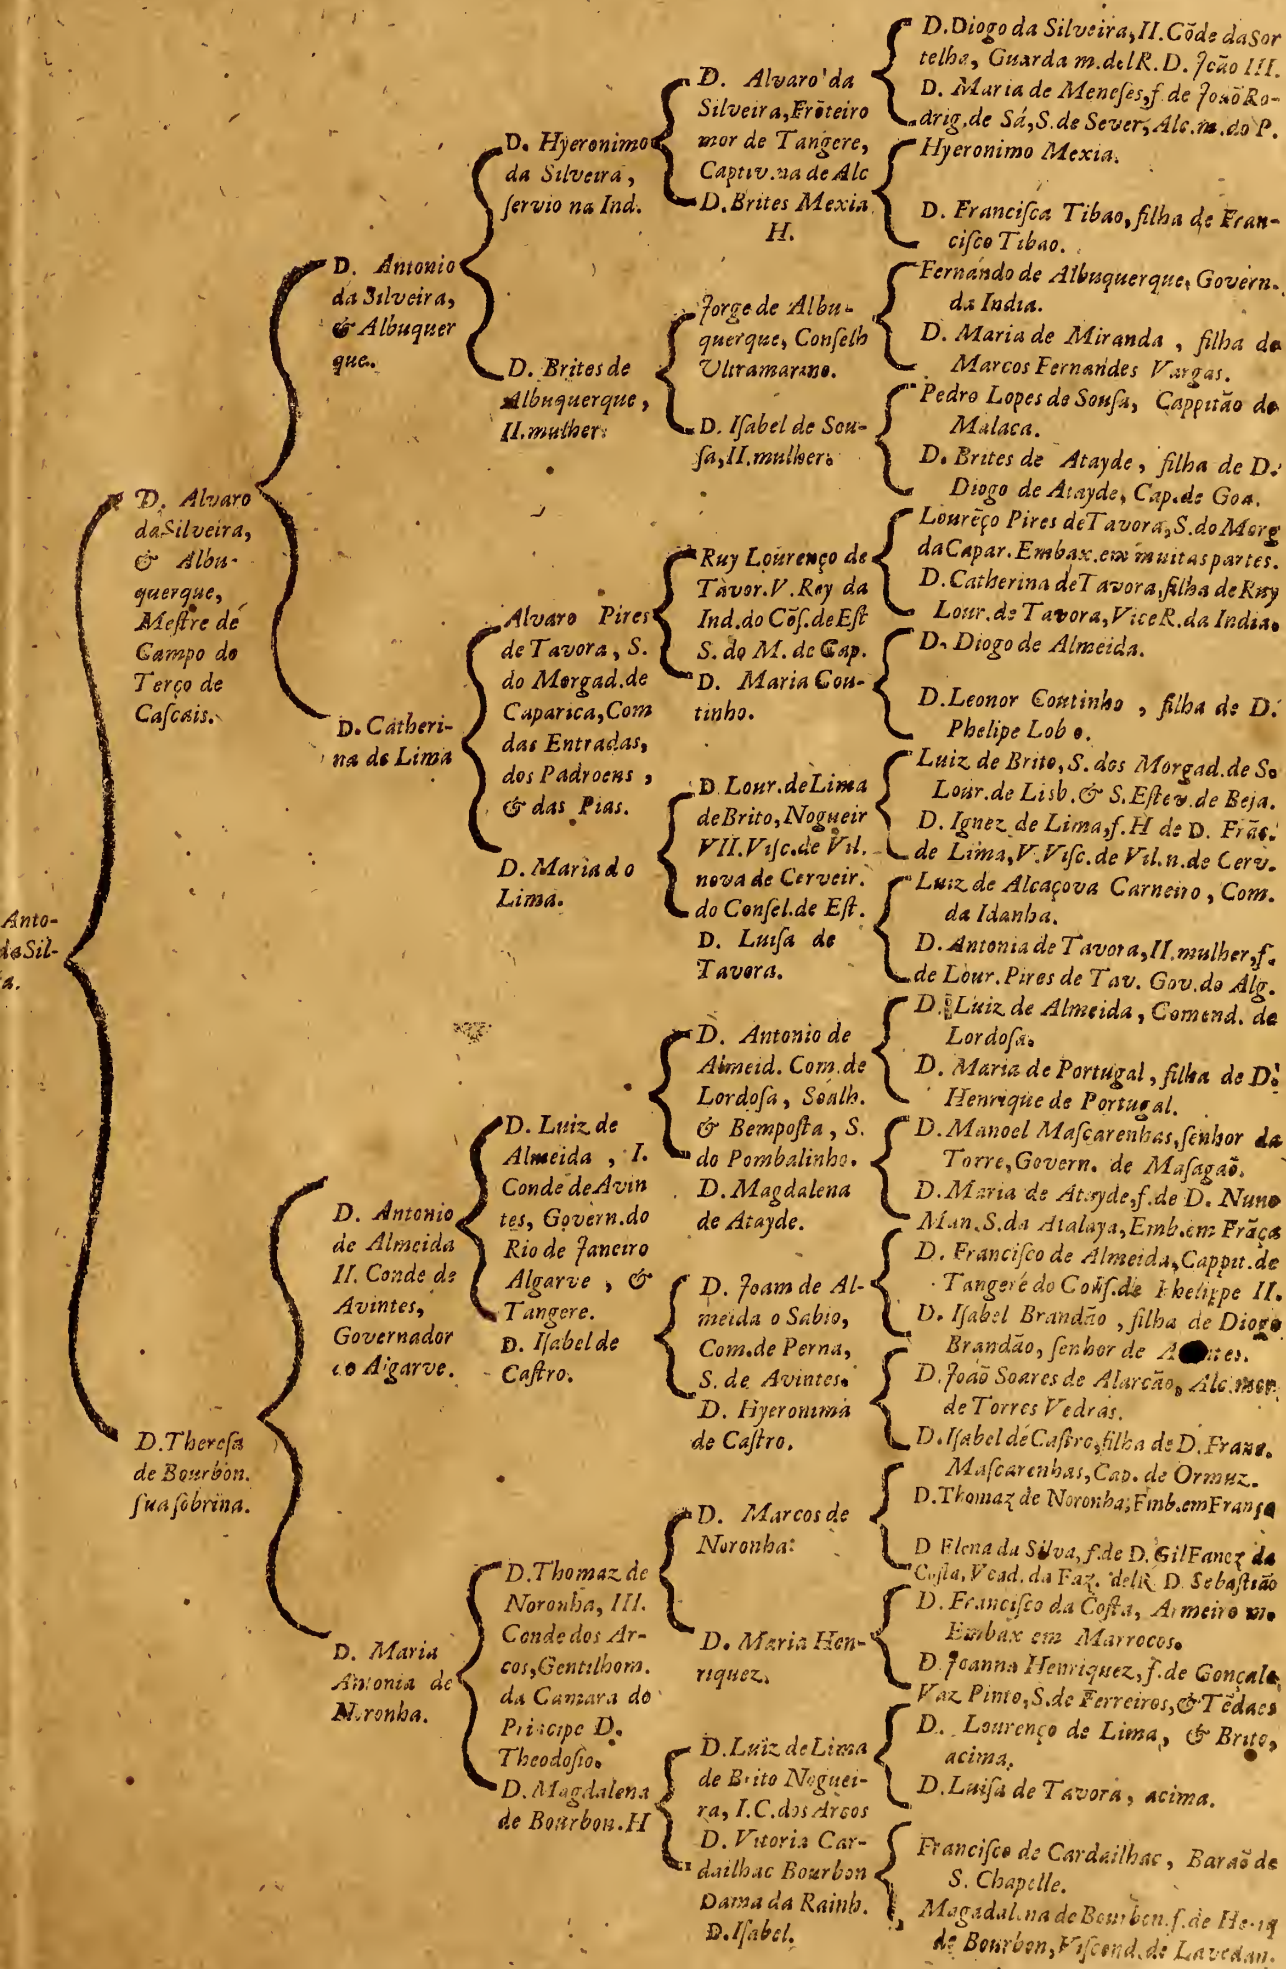 Anto-
da Sil-
a.
D. Alvaro
da Silveira,
& Albu-
querque,
Meſtre de
Campo do
Terço de
Caſcais.
D. Thereſa
de Bourbon.
ſua ſobrina.
D. Antonio
da Silveira,
& Albuquer
que.
D. Catheri-
na de Lima
D. Antonio
de Almeida
II. Conde de
Avintes,
Governador
do Algarve.
D. Maria
Antonia de
Noronha.
D. Hyeronimo
da Silveira,
ſervio na Ind.
D. Brites de
Albuquerque,
II. mulher.
Alvaro Pires
de Tavora, S.
do Morgad. de
Caparica, Com
das Entradas,
dos Padroens,
& das Pias.
D. Maria do
Lima.
D. Luiz de
Almeida, I.
Conde de Avin
tes, Govern. do
Rio de Janeiro
Algarve, &
Tangere.
D. Iſabel de
Caſtro.
D. Thomaz de
Noronha, III.
Conde dos Ar-
cos, Gentilhom.
da Camara do
Principe D.
Theodoſio.
D. Magdalena
de Bourbon. H
D. Alvaro da
Silveira, Frõteiro
mor de Tangere,
Captiv. na de Alc
D. Brites Mexia
H.
Jorge de Albu-
querque, Conſelh
Ultramarino.
D. Iſabel de Sou-
ſa, II. mulher.
Ruy Lourenço de
Tavor. V. Rey da
Ind. do Cõſ. de Eſt
S. do M. de Cap.
D. Maria Cou-
tinho.
D. Lour. de Lima
de Brito, Nogueir
VII. Viſc. de Vil.
nova de Cerveir.
do Conſel. de Eſt.
D. Luiſa de
Tavora.
D. Antonio de
Almeid. Com. de
Lordoſa, Soalh.
& Bempoſta, S.
do Pombalinho.
D. Magdalena
de Atayde.
D. Joam de Al-
meida o Sabio,
Com. de Perna,
S. de Avintes.
D. Hyeronima
de Caſtro.
D. Marcos de
Noronha.
D. Maria Hen-
riquez.
D. Luiz de Lima
de Brito Noguei-
ra, I. C. dos Arcos
D. Vitoria Car-
dailhac Bourbon
Dama da Rainh.
D. Iſabel.
D. Diogo da Silveira, II. Cõde da Sor
telha, Guarda m. del R. D. Joāo III.
D. Maria de Meneſes, f. de Joaõ Ro-
drig. de Sá, S. de Sever, Alc. m. do P.
Hyeronimo Mexia.
D. Franciſca Tibao, filha de Fran-
ciſco Tibao.
Fernando de Albuquerque, Govern.
da India.
D. Maria de Miranda, filha de
Marcos Fernandes Vargas.
Pedro Lopes de Souſa, Cappitão de
Malaca.
D. Brites de Atayde, filha de D.
Diogo de Atayde, Cap. de Goa.
Lourēço Pires de Tavora, S. do Morg
da Capar. Embax. em muitas partes.
D. Catherina de Tavora, filha de Ruy
Lour. de Tavora, Vice R. da India.
D. Diogo de Almeida.
D. Leonor Coutinho, filha de D.
Phelipe Lobo.
Luiz de Brito, S. dos Morgad. de S.
Lour. de Lisb. & S. Eſtev. de Beja.
D. Ignez de Lima, f. H de D. Frāc.
de Lima, V. Viſc. de Vil. n. de Cerv.
Luiz de Alcaçova Carneiro, Com.
da Idanha.
D. Antonia de Tavora, II. mulher, f.
de Lour. Pires de Tav. Gov. do Alg.
D. Luiz de Almeida, Comend. de
Lordoſa.
D. Maria de Portugal, filha de D.
Henrique de Portugal.
D. Manoel Maſcarenhas, ſenhor da
Torre, Govern. de Maſagaõ.
D. Maria de Atayde, f. de D. Nuno
Man. S. da Atalaya, Emb. em Frāça
D. Franciſco de Almeida, Cappit. de
Tangere do Conſ. de Phelippe II.
D. Iſabel Brandão, filha de Diogo
Brandão, ſenhor de
D. Joaõ Soares de Alarcão, Alc. mor
de Torres Vedras.
D. Iſabel de Caſtro, filha de D. Franc.
Maſcarenhas, Cap. de Ormuz.
D. Thomaz de Noronha, Emb. em França
D Elena da Silva, f. de D. Gil Eanez da
Coſta, Vead. da Faz. del R. D. Sebaſtião
D. Franciſco da Coſta, Armeiro m.
Embax em Marrocos.
D. Joanna Henriquez, f. de Gonçalo
Vaz Pinto, S. de Ferreiros, & Tēdaes
D. Lourenço de Lima, & Brito,
acima.
D. Luiſa de Tavora, acima.
Franciſco de Cardailhac, Baraõ de
S. Chapelle.
Magadalena de Bourbon. f. de Henrq
de Bourbon, Viſcond. de Lavedan.